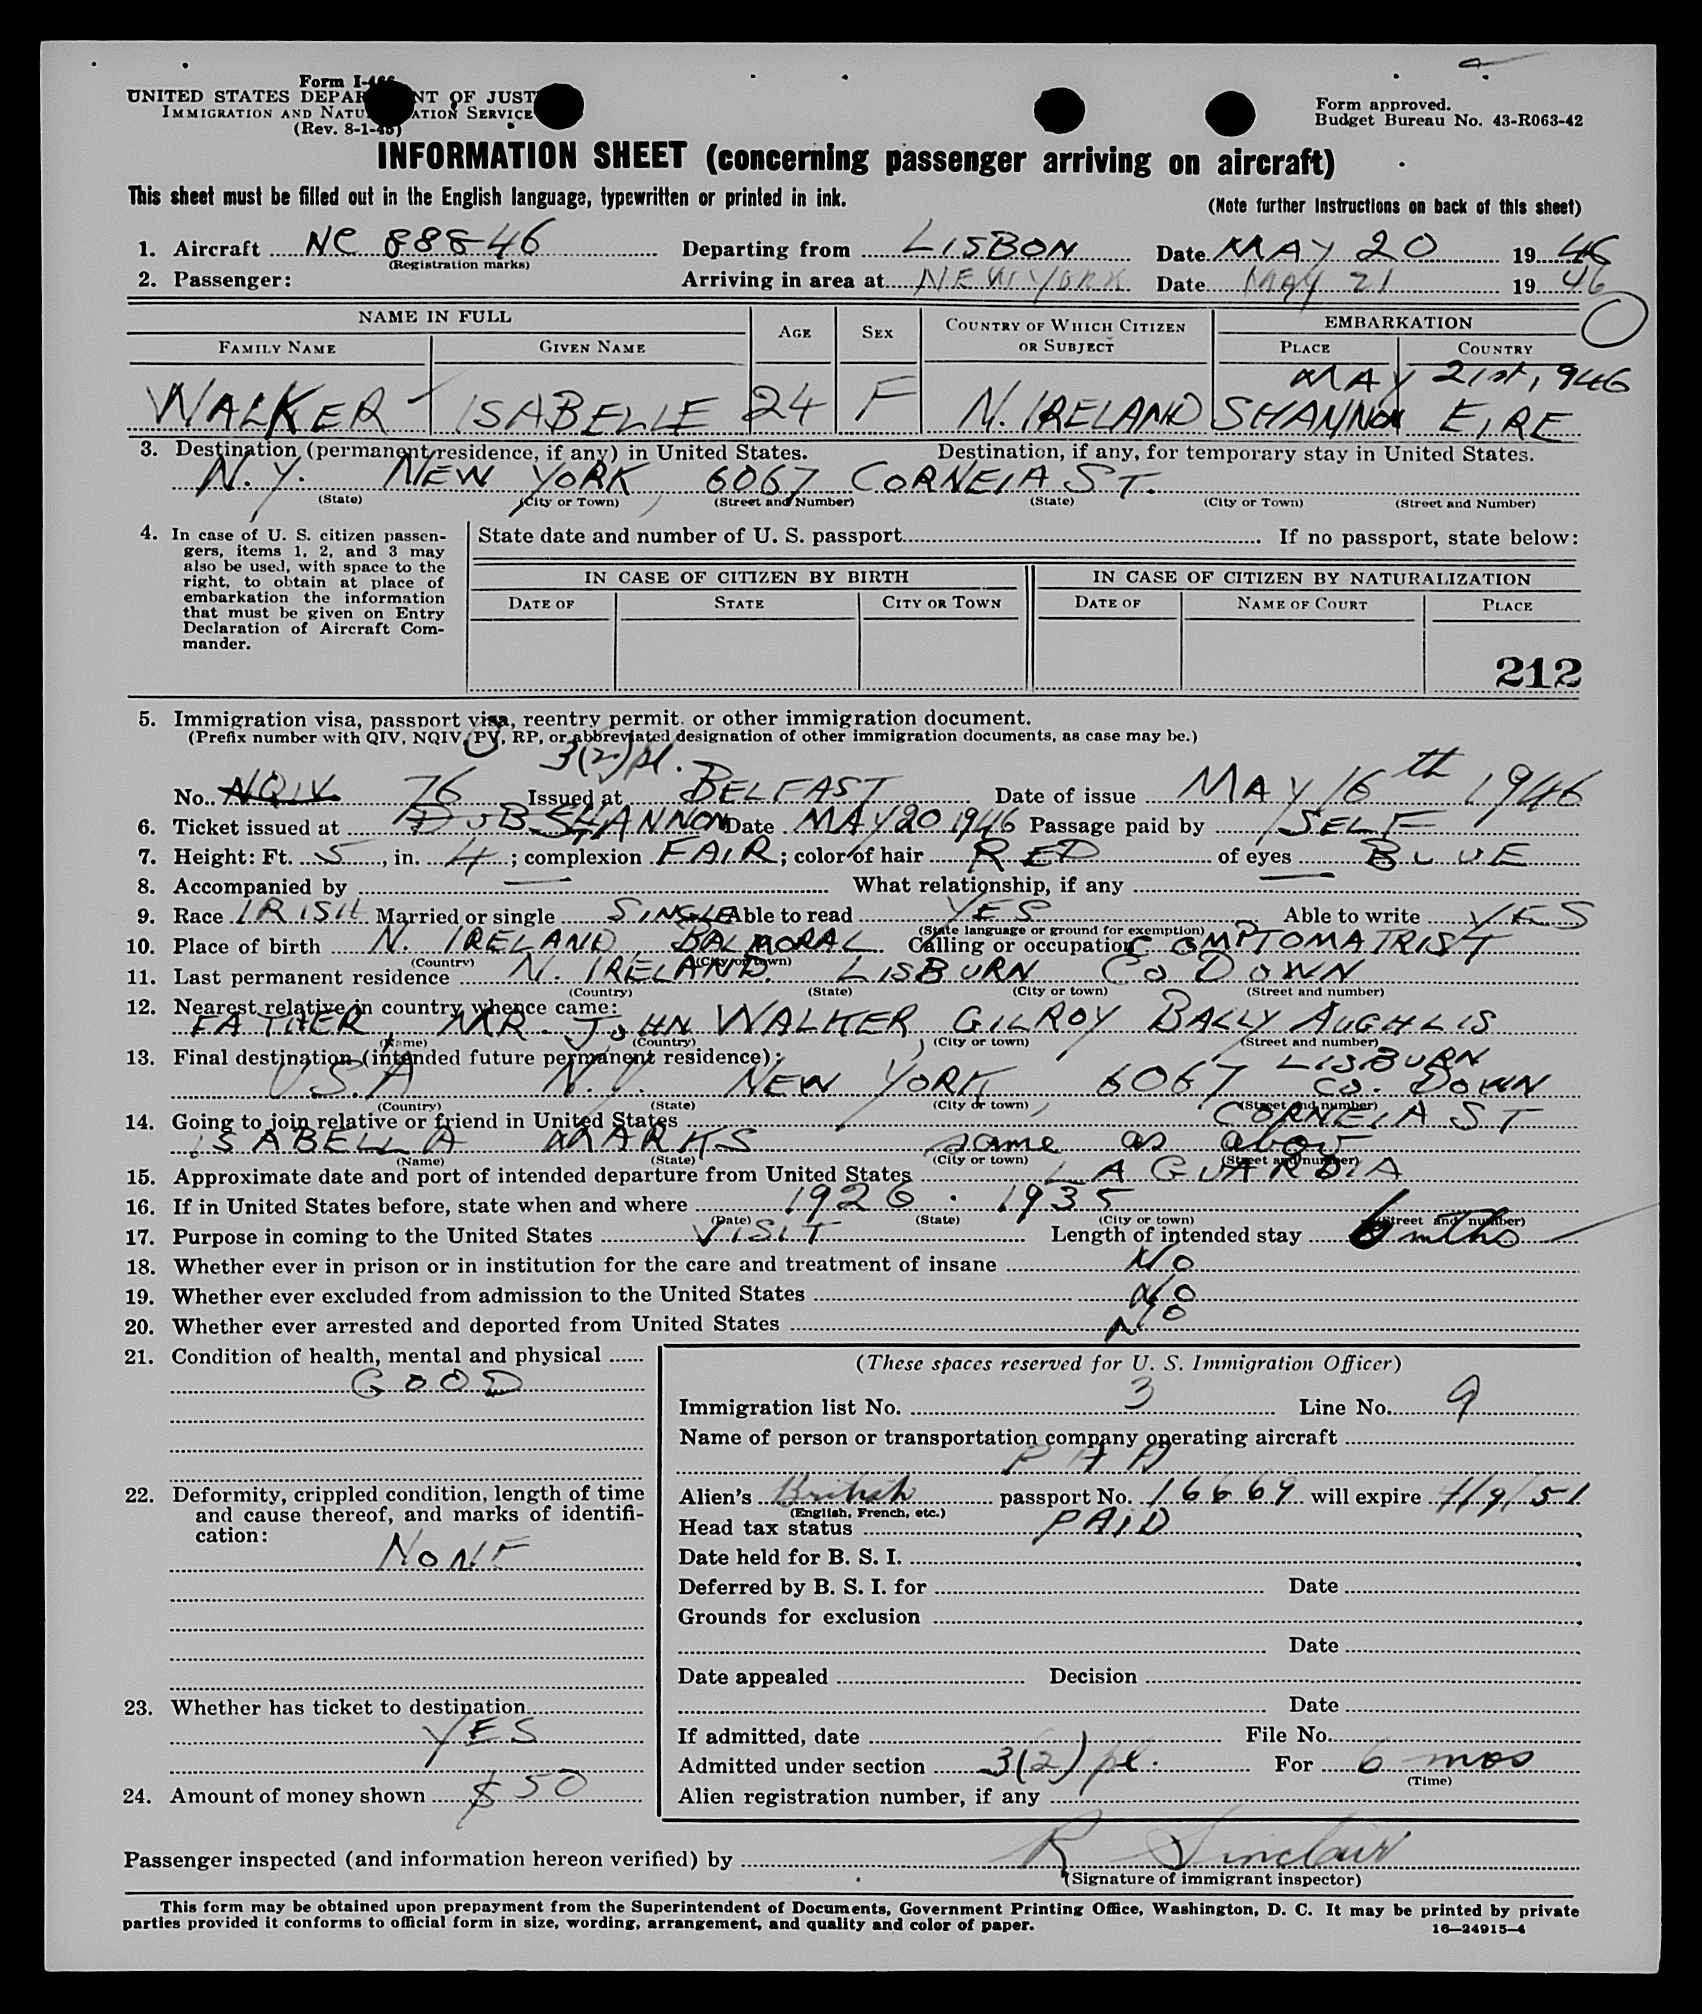 Form I-466
UNITED STATES DEPARTMENT OF JUSTICE
IMMIGRATION AND NATURALIZATION SERVICE
(Rev. 8-1-45)
Form approved.
Budget Bureau No. 43-R063-42
INFORMATION SHEET (concerning passenger arriving on aircraft)
This sheet must be filled out in the English language, typewritten or printed in ink.
(Note further instructions on back of this sheet)
1. Aircraft NC 88846 Departing from LISBON Date MAY 20 1946
(Registration marks)
2. Passenger: Arriving in area at NEW YORK Date MAY 21 1946
NAME IN FULL AGE SEX COUNTRY OF WHICH CITIZEN OR SUBJECT EMBARKATION
FAMILY NAME GIVEN NAME PLACE COUNTRY
MAY 21st, 1946
WALKER ISABELLE 24 F N. IRELAND SHANNON EIRE
3. Destination (permanent residence, if any) in United States. Destination, if any, for temporary stay in United States.
N.Y. NEW YORK, 6067 CORNEIA ST.
(State) (City or Town) (Street and Number) (State) (City or Town) (Street and Number)
4. In case of U. S. citizen passen-
gers, items 1, 2, and 3 may
also be used, with space to the
right, to obtain at place of
embarkation the information
that must be given on Entry
Declaration of Aircraft Com-
mander.
State date and number of U. S. passport If no passport, state below:
IN CASE OF CITIZEN BY BIRTH IN CASE OF CITIZEN BY NATURALIZATION
DATE OF STATE CITY OR TOWN DATE OF NAME OF COURT PLACE
212
5. Immigration visa, passport visa, reentry permit. or other immigration document.
(Prefix number with QIV, NQIV, PV, RP, or abbreviated designation of other immigration documents, as case may be.)
3(2) pl.
No. NQIV 76 Issued at BELFAST Date of issue MAY 16th 1946
6. Ticket issued at DUB SHANNON Date MAY 20 1946 Passage paid by SELF
7. Height: Ft. 5, in. 4; complexion FAIR; color of hair RED of eyes BLUE
8. Accompanied by — What relationship, if any —
9. Race IRISH Married or single SINGLE Able to read YES Able to write YES
(State language or ground for exemption)
10. Place of birth N. IRELAND BALMORAL Calling or occupation COMPTOMATRIST
(Country) (City or town)
11. Last permanent residence N. IRELAND. LISBURN CO DOWN
(Country) (State) (City or town) (Street and number)
12. Nearest relative in country whence came:
FATHER, MR. JOHN WALKER GILROY BALLY AUGHLIS
(Name) (Country) (City or town) (Street and number)
LISBURN
13. Final destination (intended future permanent residence):
U.S.A N.Y. NEW YORK, 6067 CO. DOWN
(Country) (State) (City or town) (Street and number)
CORNEIA ST
14. Going to join relative or friend in United States
ISABELLA MARKS same as above
(Name) (State) (City or town) (Street and number)
15. Approximate date and port of intended departure from United States LA GUARDIA
16. If in United States before, state when and where 1926 . 1935
(Date) (State) (City or town) (Street and number)
17. Purpose in coming to the United States VISIT Length of intended stay 6 mths
18. Whether ever in prison or in institution for the care and treatment of insane NO
19. Whether ever excluded from admission to the United States NO
20. Whether ever arrested and deported from United States NO
21. Condition of health, mental and physical
GOOD
(These spaces reserved for U. S. Immigration Officer)
Immigration list No. 3 Line No. 9
Name of person or transportation company operating aircraft
PAA
22. Deformity, crippled condition, length of time
and cause thereof, and marks of identifi-
cation:
NONE
Alien's British passport No. 16669 will expire 4/9/51
(English, French, etc.)
Head tax status PAID
Date held for B. S. I.
Deferred by B. S. I. for Date
Grounds for exclusion
Date
Date appealed Decision
Date
23. Whether has ticket to destination
YES
If admitted, date File No.
Admitted under section 3(2) pl. For 6 mos
(Time)
24. Amount of money shown $50
Alien registration number, if any
Passenger inspected (and information hereon verified) by R Sinclair
(Signature of immigrant inspector)
This form may be obtained upon prepayment from the Superintendent of Documents, Government Printing Office, Washington, D. C. It may be printed by private
parties provided it conforms to official form in size, wording, arrangement, and quality and color of paper.
16—24915-4